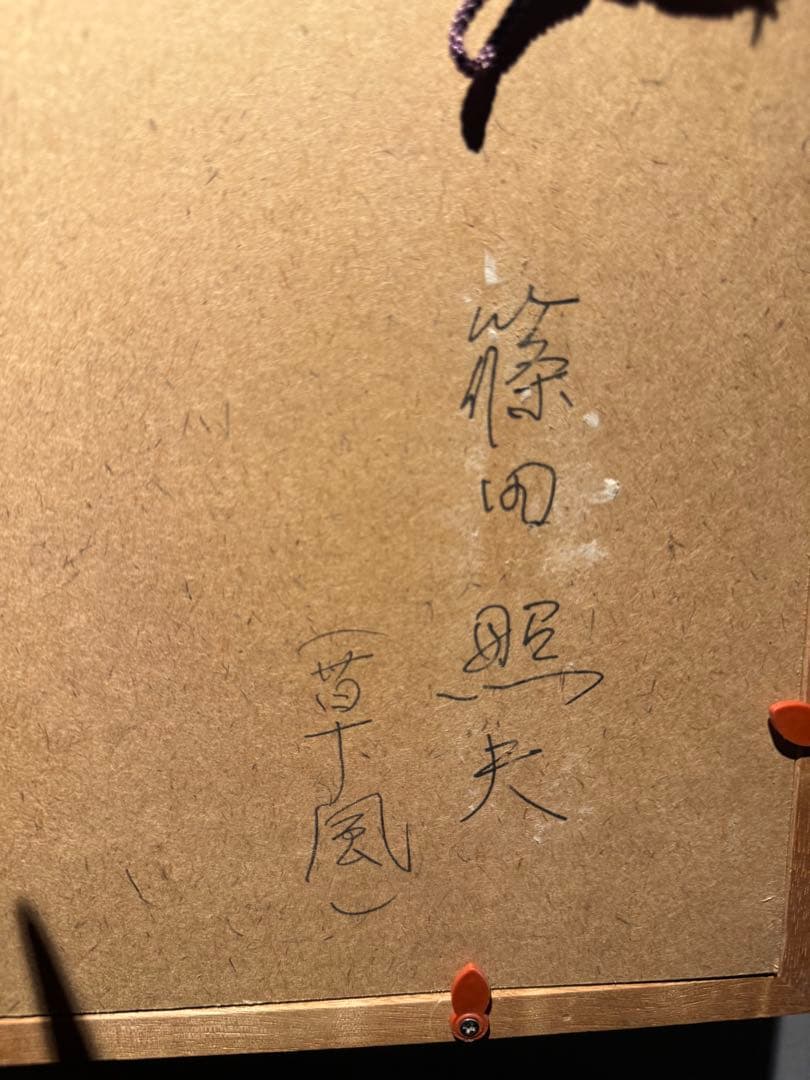 篠田照夫
(草風)